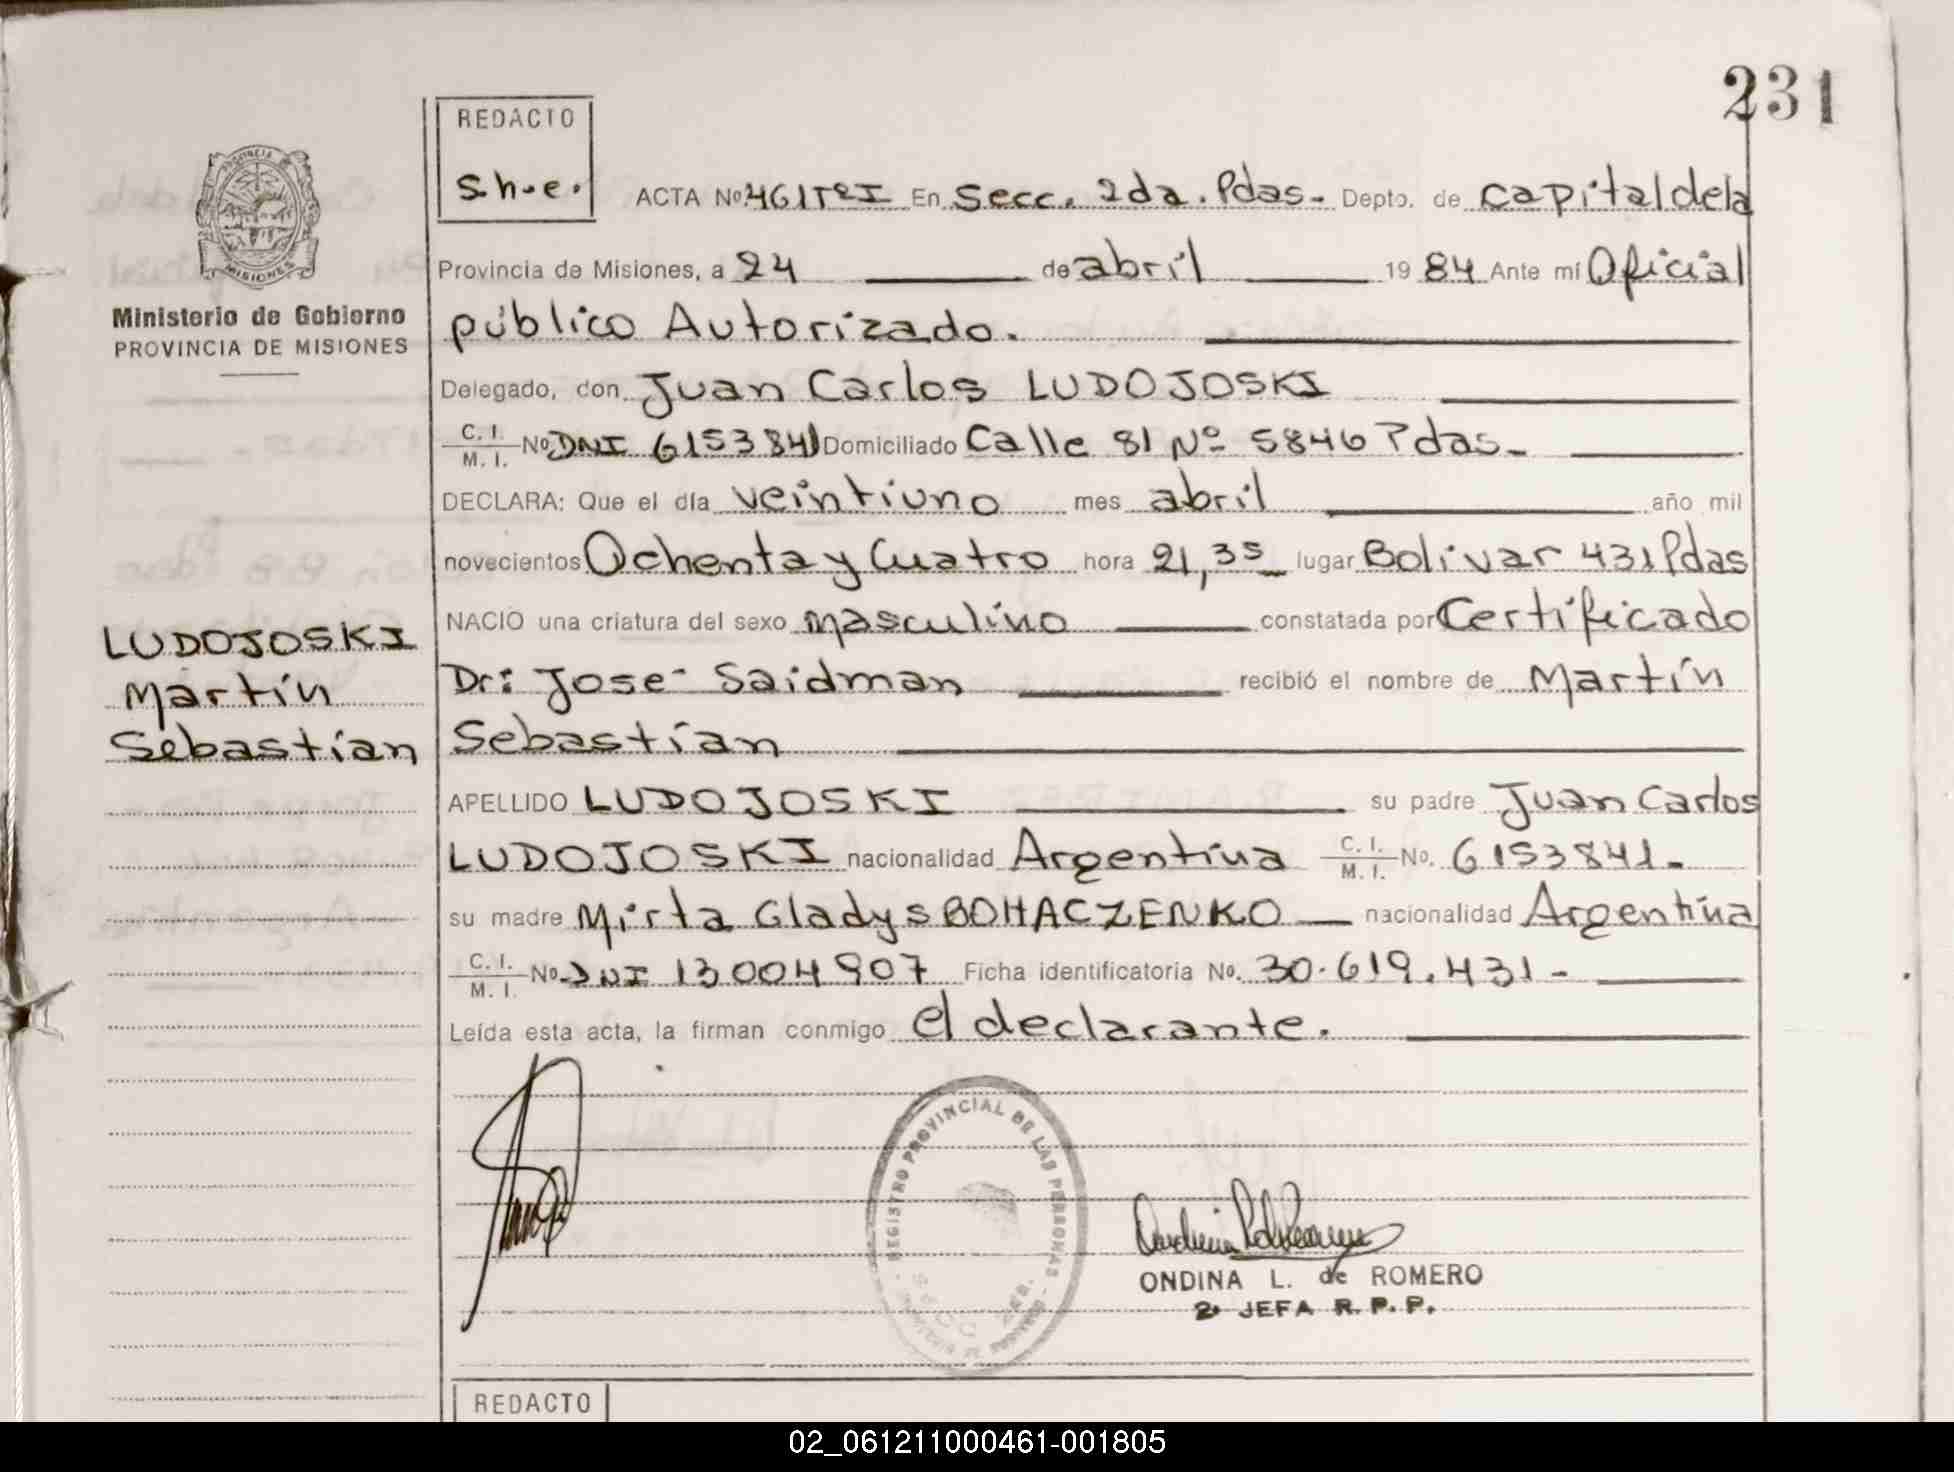 231
REDACTO
s.h.e.
PROVINCIA DE MISIONES
Ministerio de Gobierno
PROVINCIA DE MISIONES
ACTA No. 461TºI En Secc. 2da. Pdas. Depto. de Capital de la
Provincia de Misiones, a 24 de abril 1984 Ante mí Oficial
público Autorizado.
Delegado, don Juan Carlos LUDOJOSKI
C. I. / M. I. No. DNI 6153841 Domiciliado Calle 81 Nº 5846 Pdas.
DECLARA: Que el día veintiuno mes abril año mil
novecientos Ochenta y Cuatro hora 21,35 lugar Bolivar 431 Pdas
NACIO una criatura del sexo masculino constatada por Certificado
Dr: José Saidman recibió el nombre de Martín
Sebastían
LUDOJOSKI
Martín
Sebastían
APELLIDO LUDOJOSKI su padre Juan Carlos
LUDOJOSKI nacionalidad Argentina C. I. / M. I. No. 6153841.
su madre Mirta Gladys BOHACZENKO nacionalidad Argentina
C. I. / M. I. No. DNI 13004907 Ficha identificatoria No. 30.619.431-
Leída esta acta, la firman conmigo el declarante.
REGISTRO PROVINCIAL DE LAS PERSONAS
ONDINA L. de ROMERO
2º JEFA R. P. P.
REDACTO
02_061211000461-001805